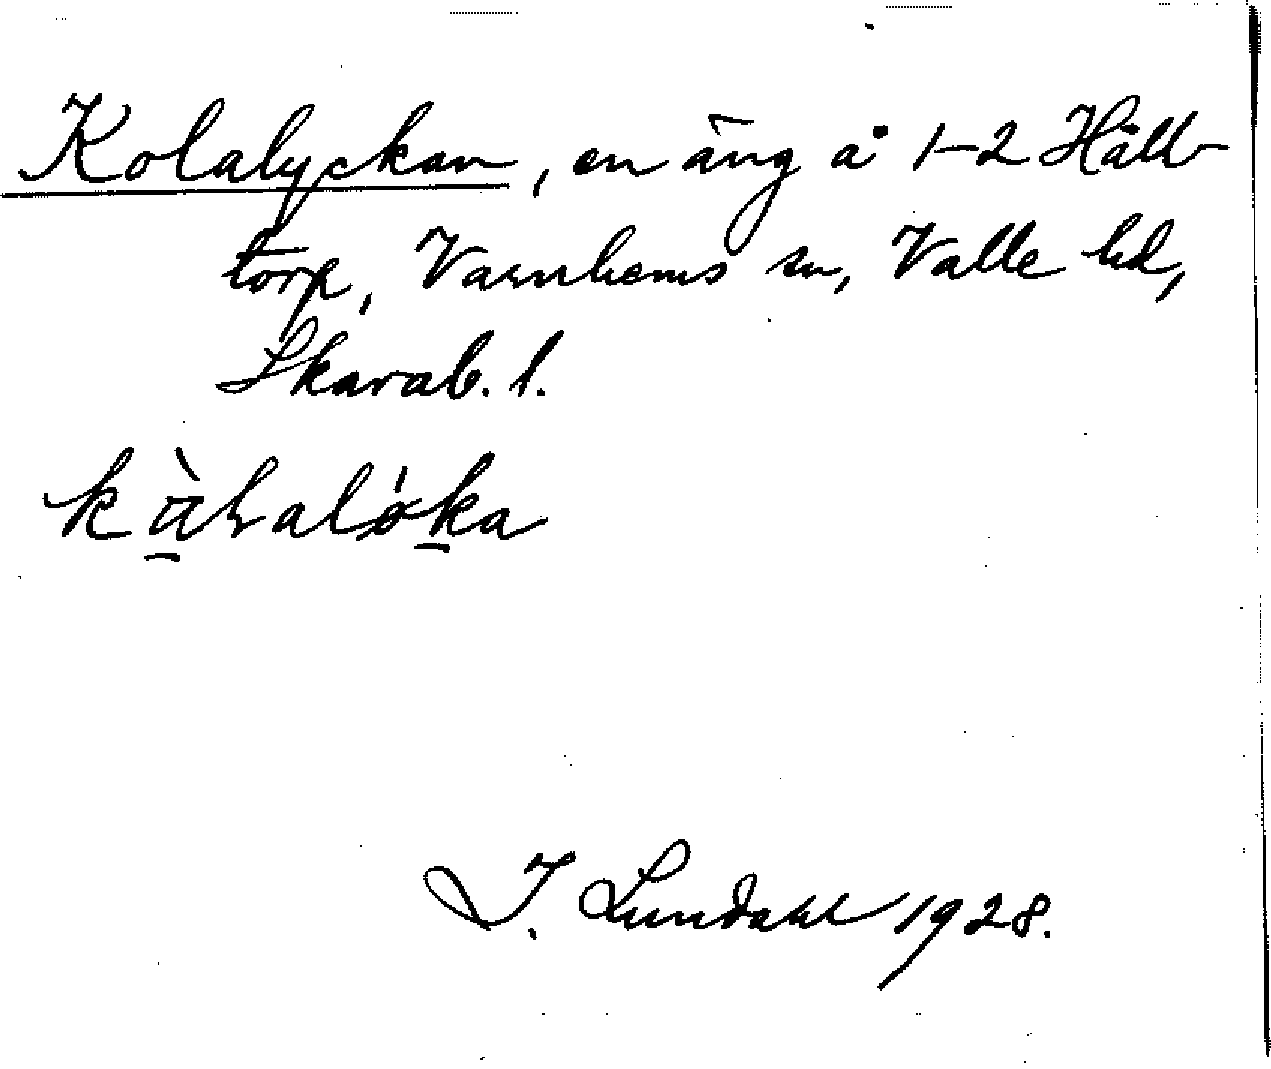 Kolalyckan, en äng å 1-2 Häll-
torp, Varnhems sn, Valle hd,
Skarab. l.
I. Lundahl 1928.